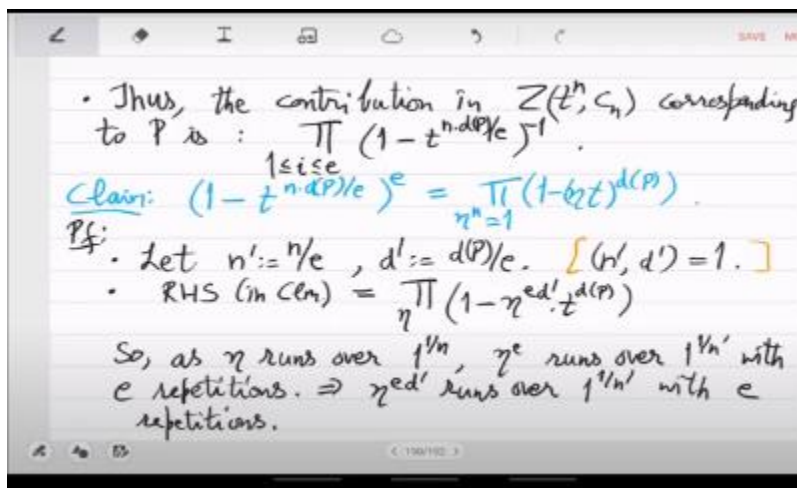 SAVE
· Thus, the contribution in Z(tⁿ, Cₙ) corresponding
to P is : ∏ (1 - t^{n·d(P)/e})^{-1} .
1≤i≤e
Claim: (1 - t^{n·d(P)/e})^e = ∏ (1-(ηt)^{d(P)}) .
ηⁿ=1
Pf:
· Let n' := n/e , d' := d(P)/e. [(n', d') = 1. ]
· RHS (in Clm) = ∏ (1 - η^{ed'}·t^{d(P)})
η
So, as η runs over 1^{1/n}, η^e runs over 1^{1/n'} with
e repetitions. ⇒ η^{ed'} runs over 1^{1/n'} with e
repetitions.